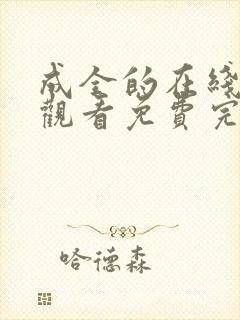 成全的在綫
觀看免費完
哈德森